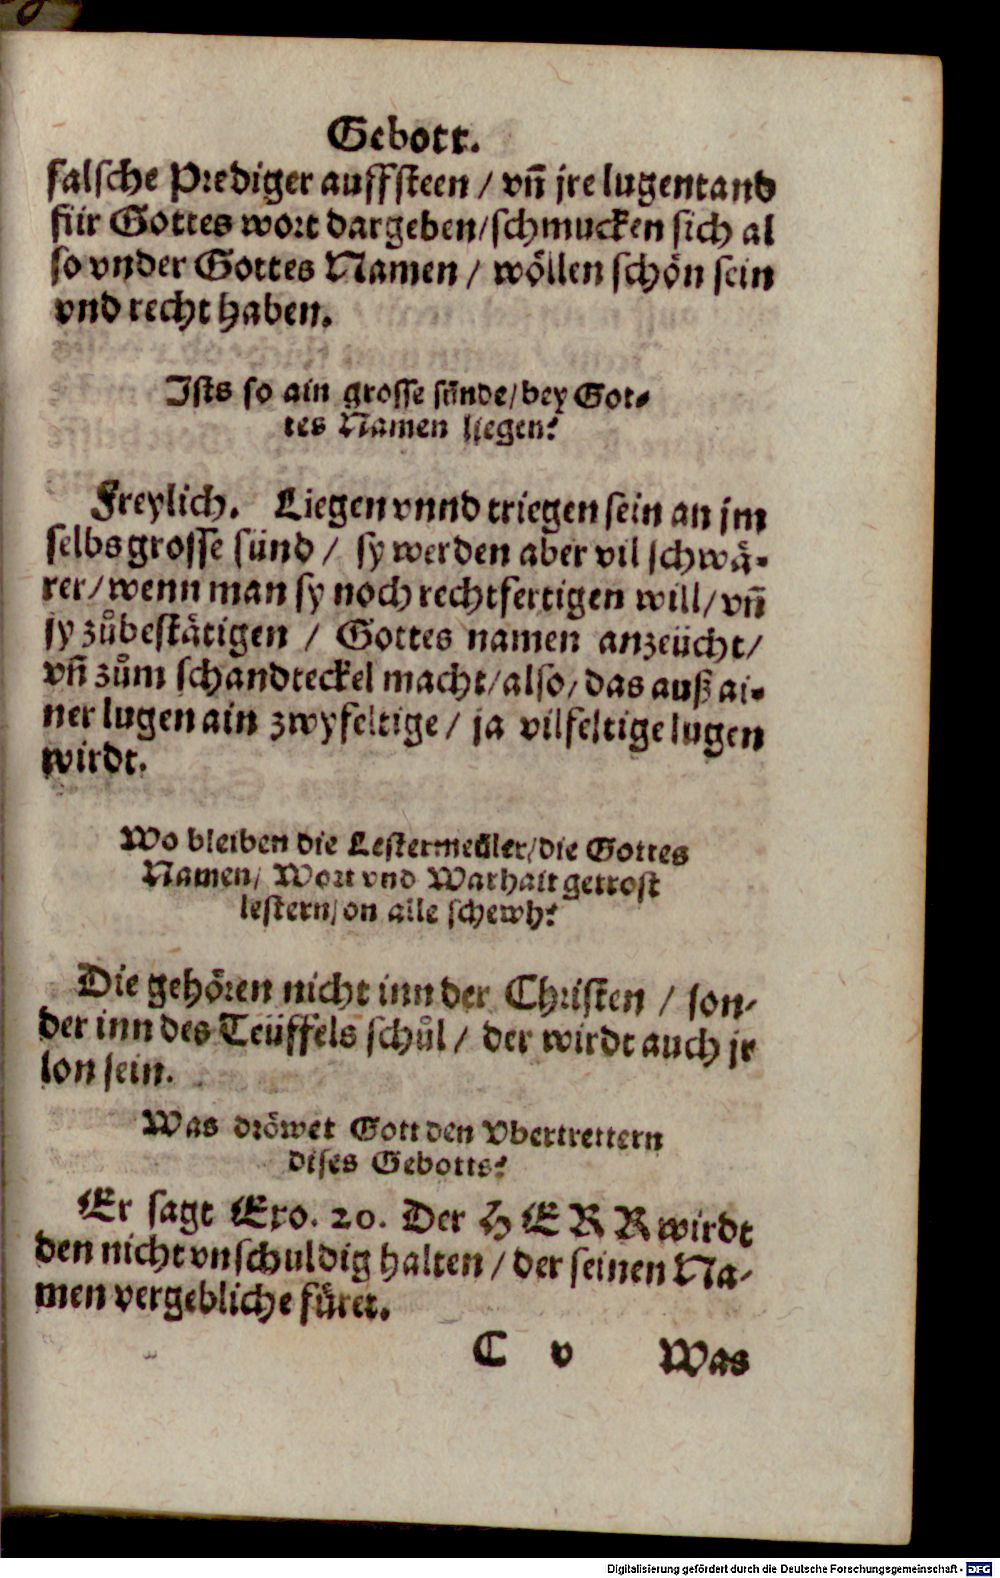 Gebott.
falsche Prediger auffsteen / vñ jre lugentand
für Gottes wort dargeben/schmucken sich al
so vnder Gottes Namen / wöllen schön sein
vnd recht haben.
Ists so ain grosse sünde/bey Got-
tes Namen liegen?
Freylich. Liegen vnnd triegen sein an jm
selbs grosse sünd / sy werden aber vil schwå-
rer/wenn man sy noch rechtfertigen will/vñ
sy zůbestätigen / Gottes namen anzeücht/
vñ zům schandteckel macht/also/das auß ai-
ner lugen ain zwyfeltige / ja vilfeltige lugen
wirdt.
Wo bleiben die Lestermeüler/die Gottes
Namen/ Wort vnd Warhait getrost
lestern/on alle schewh?
Die gehören nicht inn der Christen / son-
der inn des Teüffels schůl / der wirdt auch jr
lon sein.
Was dröwet Gott den Vbertrettern
dises Gebotts?
Er sagt Exo. 20. Der HERR wirdt
den nicht vnschuldig halten / der seinen Na-
men vergebliche füret.
C v Was
Digitalisierung gefördert durch die Deutsche Forschungsgemeinschaft - DFG